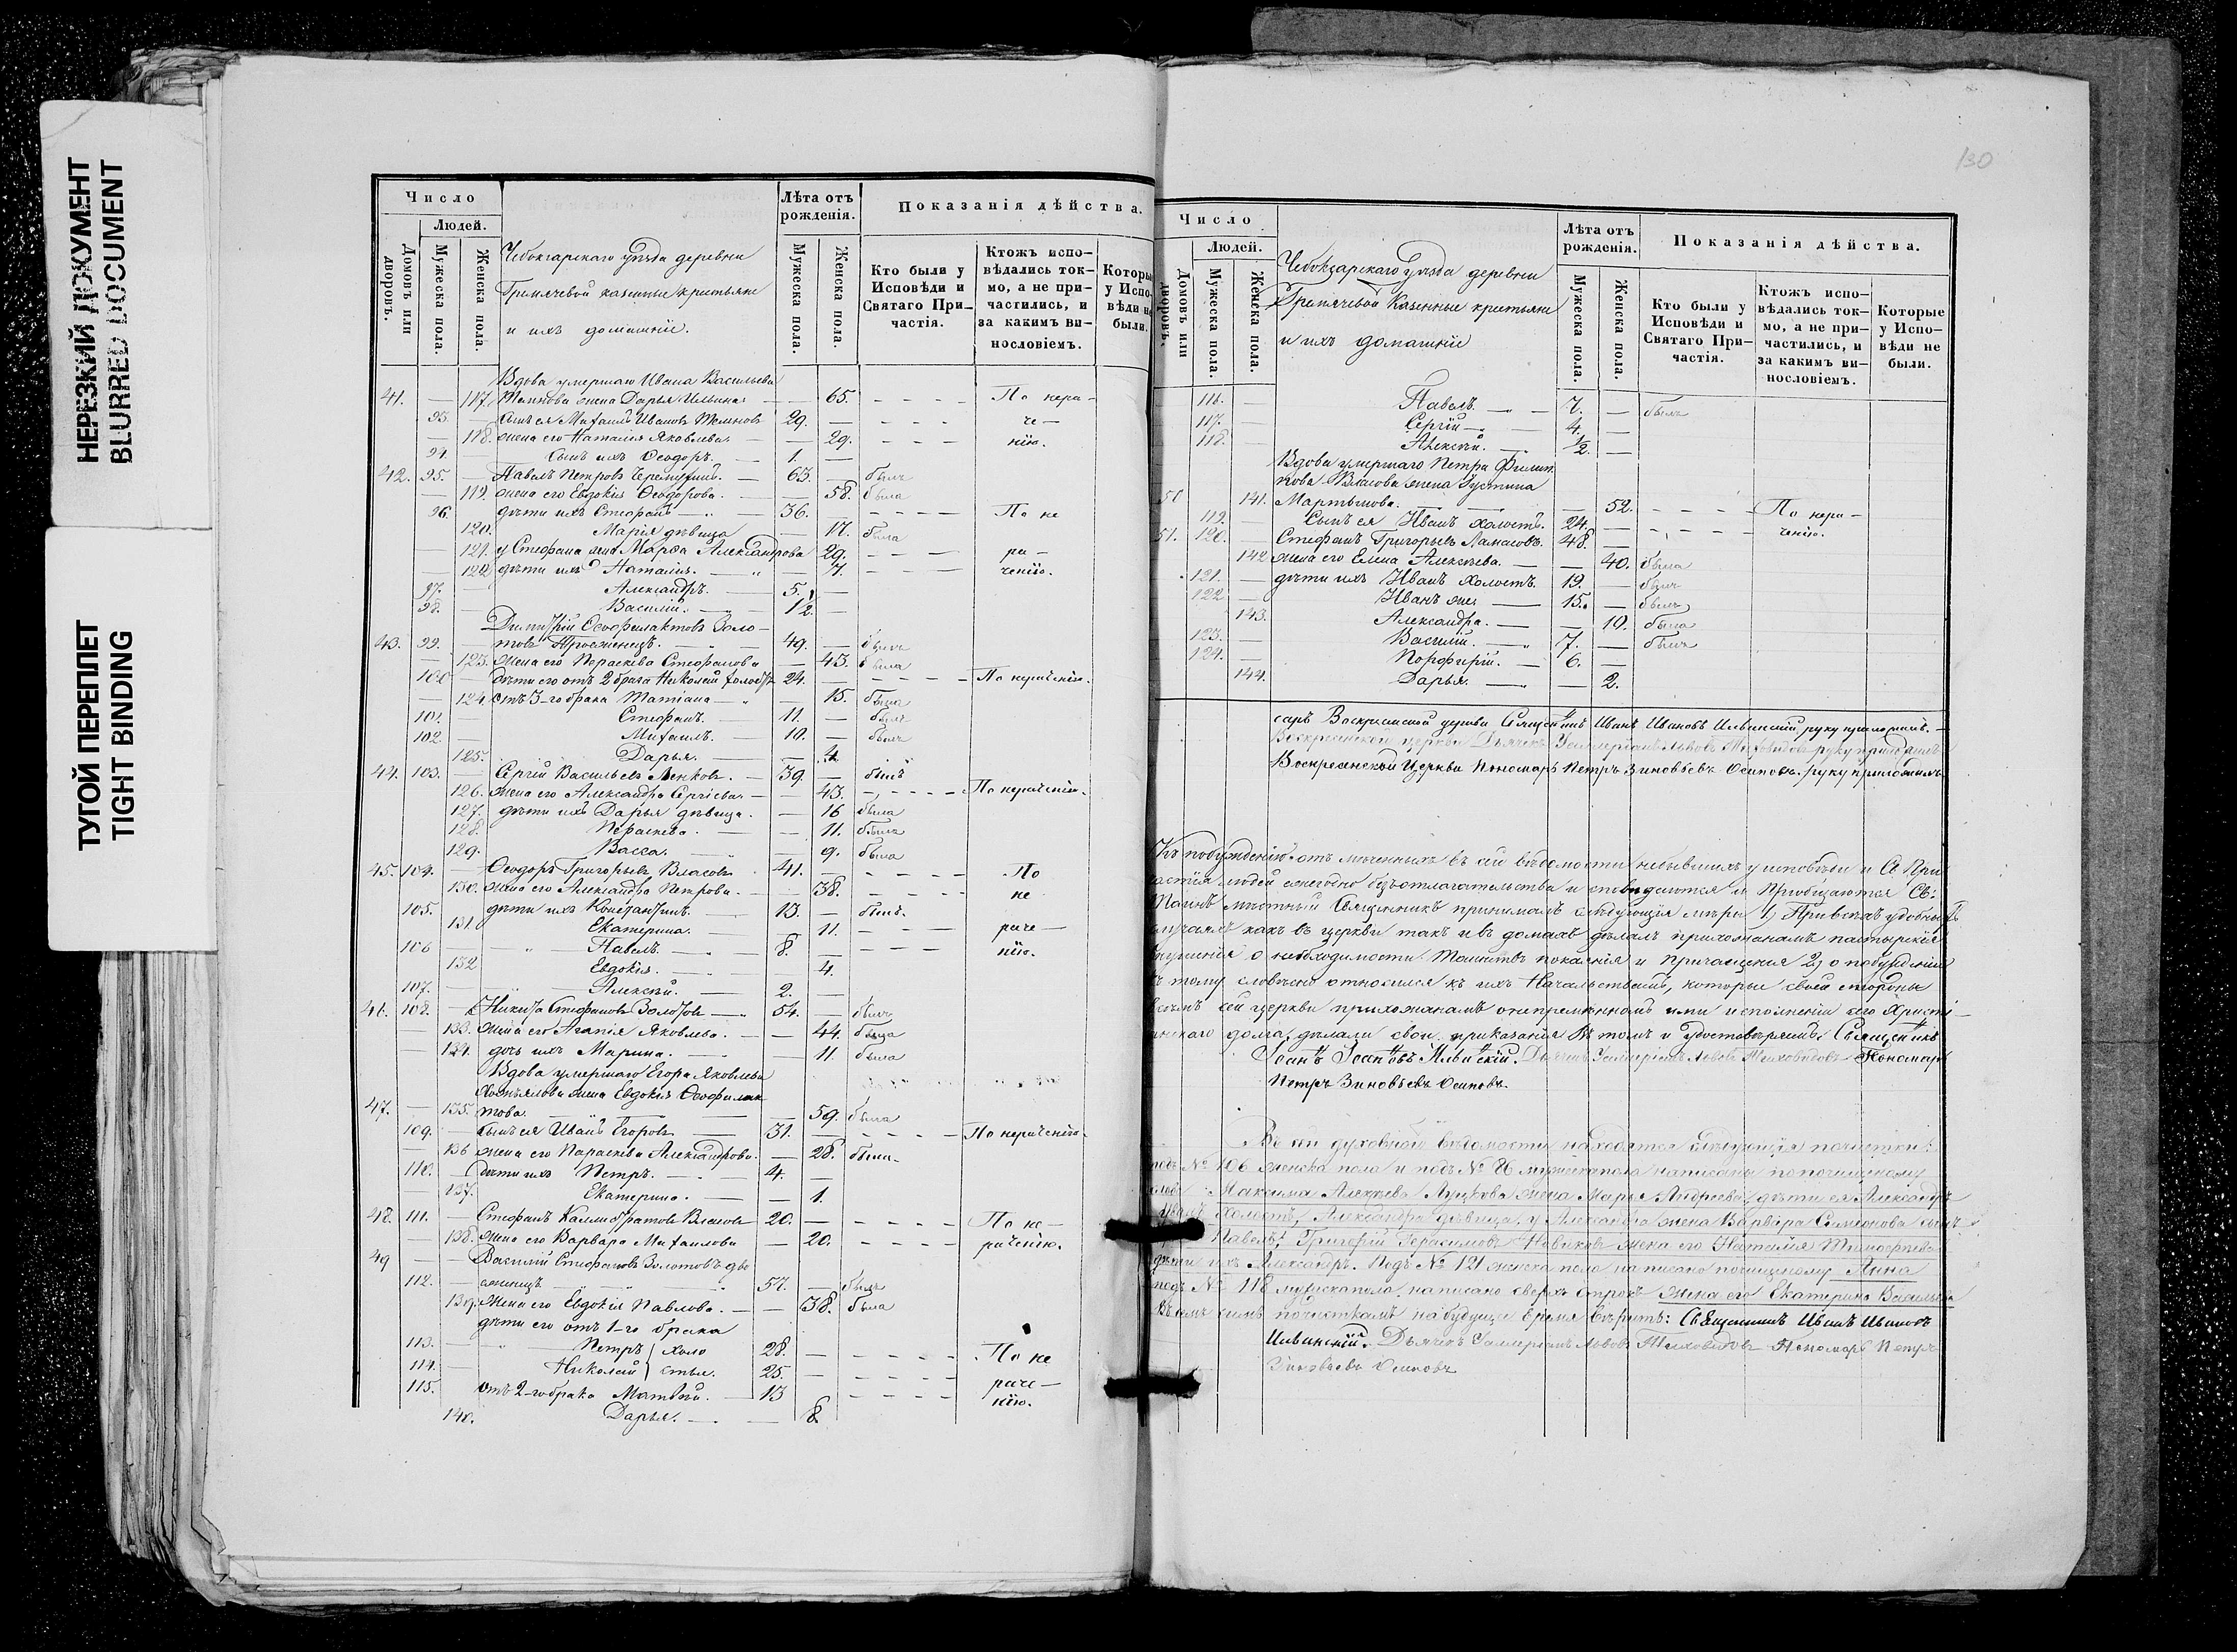 НЕРЕЗКИЙ ДОКУМЕНТ
BLURRED DOCUMENT
ТУГОЙ ПЕРЕПЛЕТ
TIGHT BINDING
Число
Людей.
Домовъ или дворовъ.
Мужеска пола.
Женска пола.
Чебоксарскаго уѣзда деревни
Гремячевой казенные крестьяне
и ихъ домашніе.
Лѣта отъ рожденія.
Мужеска пола.
Женска пола.
Показанія дѣйства.
Кто были у Исповѣди и Святаго Причастія.
Ктожъ исповѣдались токмо, а не причастились, и за какимъ винословіемъ.
Которые у Исповѣди не были.
Вдова умершаго Ивана Васильева
41. — 117. жена Дарья Ильина — 65. По нера-
93. — Сынъ ея Михаилъ Ивановъ 29. — че-
— 118. жена его Наталія Яковлева — 29. нію.
94. Сынъ ихъ Ѳеодоръ. — 1. —
42. 95. — Павелъ Петровъ — 63. — былъ
— 119. жена его Евдокія Ѳеодорова. — 58. была
96. дѣти ихъ Стефанъ — 36. — По не
120. Марія дѣвица — 17. была
— 121. у Стефана жена Марѳа Александрова 29. ра-
— 122. дѣти ихъ Наталія. — 7. ченію.
97. — Александръ. — 5. —
98. — Василій. — 1/2. —
Димитрій Ѳеофилактовъ Золо-
43. 99. — товъ — 49. — былъ
— 123. жена его Параскева Стефанова — 43. была
100 — Дѣти его отъ 2 брака Николай холостъ 24. — По нераченію.
— 124. отъ 3-го брака Татіана — 15. была
101. — Стефанъ. — 11. — былъ
102. — Михаилъ. — 10. — былъ
125. Дарья. — 4.
44. 103. — Сергій Васильевъ — 39. — былъ
126. жена его Александра Сергіева — 43. По нераченію.
127. дѣти ихъ Дарья дѣвица. — 16 была
128. Параскева. — 11. была
129. Васса. — 9. была
45. 104. — Ѳеодоръ Григорьевъ Власовъ 41. — По
130. жена его Александра Петрова. — 38. не
105. дѣти ихъ Константинъ. 13. — былъ.
131. Екатерина. — 11. раче-
106 — Павелъ. — 8. — нію.
132 Евдокія. — 4.
107. — Алексѣй. — 2. —
46. 108. — Никита Стефановъ Золотовъ — 54. — былъ
— 133. жена его Агапія Яковлева. — 44. была
— 134. дочь ихъ Марина. — 11. была
Вдова умершаго Егора Яковлева
жена Евдокія Ѳеофилак-
47. — 135. това. — 59. была
109. — Сынъ ея Иванъ Егоровъ — 31. — По нераченію.
— 136 жена его Параскева Александрова. — 28. была.
110. — Дѣти ихъ Петръ. — 4. —
— 137. Екатерина. — 1.
48. 111. — Стефанъ Каллистратовъ Власовъ 20. — По не-
— 138. жена его Варвара Михаилова — 20. раченію.
49 — Василій Стефановъ Золотовъ дво
112. — еженецъ — 57. — былъ
139. жена его Евдокія Павлова. — 38. была
дѣти его отъ 1-го брака
113. — Петръ холо 28. — По не
114. — Николай стые. 25. — раче-
115. отъ 2-го брака Матвѣй. — 13 нію.
140. Дарья. — 8.
130
Число
Людей.
Домовъ или дворовъ.
Мужеска пола.
Женска пола.
Чебоксарскаго уѣзда деревни
Гремячевой Казенные крестьяне
и ихъ домашніе
Лѣта отъ рожденія.
Мужеска пола.
Женска пола.
Показанія дѣйства.
Кто были у Исповѣди и Святаго Причастія.
Ктожъ исповѣдались токмо, а не причастились, и за какимъ винословіемъ.
Которые у Исповѣди не были.
116. Павелъ. — 7. — былъ
117. Сергій — 4. —
118. Алексѣй. — 1/2. —
Вдова умершаго Петра Филип-
пова Власова жена Устина
50 141. Мартынова. — 52. По нера-
119. — Сынъ ея Иванъ холостъ. 24. — ченію.
51. 120. — Стефанъ Григорьевъ 48. —
142 жена его Елена Алексѣева. — 40. была
121. — дѣти ихъ Иванъ холостъ. 19. — былъ
122. Иванъ же — 15. — былъ
143. Александра. — 10. была
123. — Василій. — 7. — былъ
124. — Порфирій. — 6. —
144. Дарья. — 2.
Воскресенской церкви Священникъ Иванъ Ивановъ Ильинскій руку приложилъ.
Воскресенской церкви Дьячекъ руку приложилъ
Воскресенской Церкви Пономарь Петръ Зиновьевъ Осиповъ руку приложилъ.
Къ побужденію отмѣченныхъ въ сей вѣдомости небывшихъ у исповѣди и С. При
частія людей ежегодно безъотлагательства и исповѣдаются и Пріобщаются Св:
Таинъ мѣстный Священникъ принималъ слѣдующія мѣры 1) При всѣхъ удобныхъ
случаяхъ какъ въ церкви такъ и въ домахъ дѣлалъ прихожанамъ пастырскія
внушенія о необходимости Таинствъ покаянія и Причащенія 2) о побужденіи
къ тому словесно относился къ ихъ Начальствамъ, которые своей стороны
всѣмъ сей церкви прихожанамъ о непремѣнномъ ими исполненіи сего Христі-
анскаго долга, дѣлали свои приказанія Въ томъ и удостовѣряемъ: Священникъ
Іоаннъ Іоанновъ Ильинскій. Дьячекъ Пономарь
Петръ Зиновьевъ Осиповъ.
Въ сей духовной вѣдомости находятся слѣдующія почистки:
подъ № 106 женска пола и подъ № 86 мужеска пола написаны по почищенному
Максима Алексѣева жена Марья Андреева, дѣти ея Александръ
холостъ, Александра дѣвица, у Александра жена Варвара Симеонова сынъ
Павелъ, Григорій Герасимовъ Новиковъ жена его Наталія Тимофеева
дѣти ихъ Александръ. Подъ № 121 женска пола написано почищенному Анна
подъ № 118 мужеска пола написано сверхъ строкъ жена его Екатерина Васильева
Всѣмъ симъ почисткамъ на будущее время вѣрить: Священникъ Иванъ Ивановъ
Ильинскій. Дьячекъ Пономарь Петръ
Зиновьевъ Осиповъ